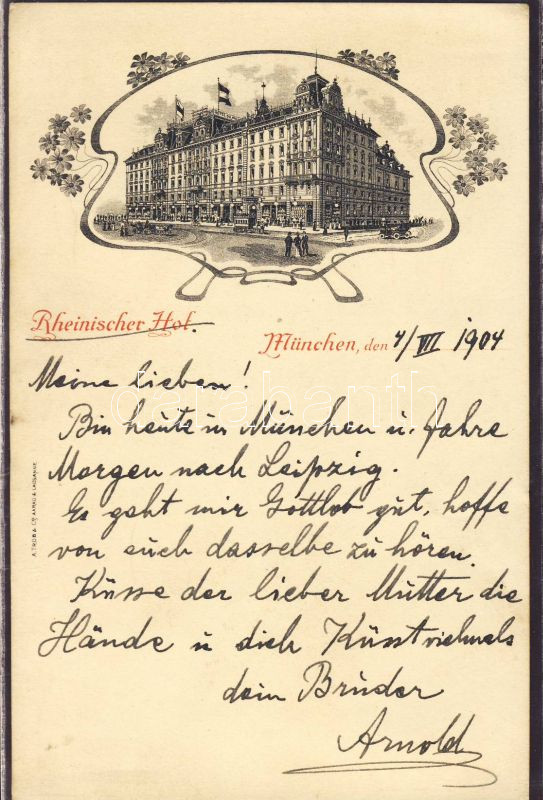 Rheinischer Hof.
München, den 4/VII 1904
Meine lieben!
Bin heute in München u. fahre
Morgen nach Leipzig.
Es geht mir Gottlob gut, hoffe
von euch dasselbe zu hören.
Küsse der lieber Mutter die
Hände u dich Küsst vielmals
dein Bruder
Arnold
A. TRÜB & CIE AARAU & LAUSANNE
darabanth